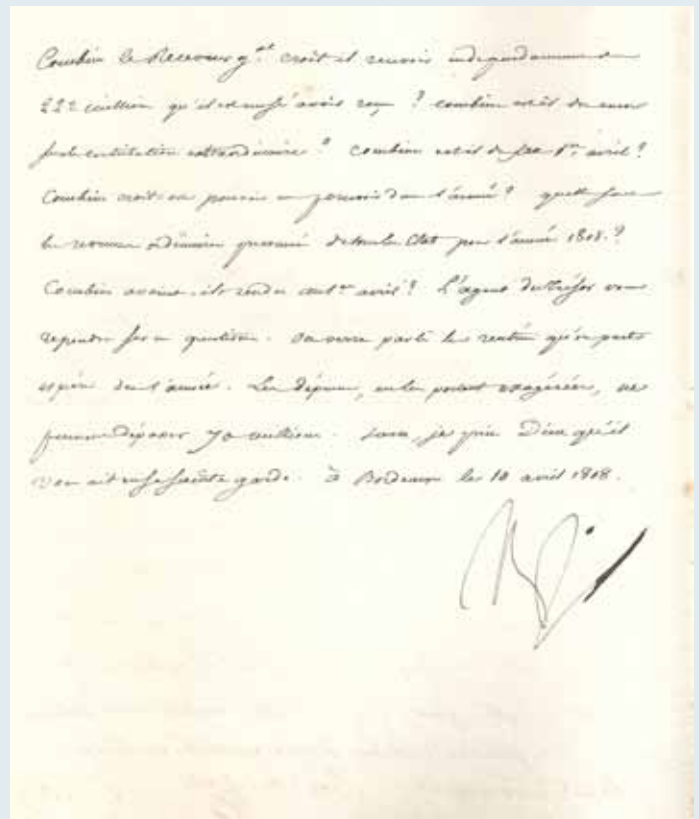 Combien le Receveur gal croit il recevoir indépendamment de
222 million qu'il est censé avoir reçu ? combien est il dû encore
sur la contribution extraordinaire ? Combien est il dû au 1er avril ?
Combien croit-on pouvoir en percevoir dans l'année ? quelle sera
le revenu ordinaire présumé de tout l'Etat pour l'année 1808. ?
Combien avaient-ils rendu au 1er avril ? L'agent du trésor vous
répondre sur ces questions. On verra par là les rentrées qu'on peut
espérer dans l'année. Les dépenses, en les portant exagérées, ne
peuvent dépasser 70 millions. Sur ce, je prie Dieu qu'il
vous ait en sa sainte garde. à Bordeaux le 10 avril 1808.